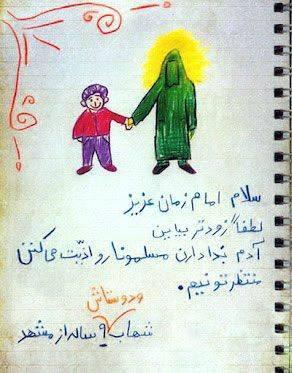 سلام امام زمان عزیز
لطفاً زودتر بیاین
آدم بدا دارن مسلمونا رو اذیّت می کنن
منتظرتونیم.
و دوستاش
شهاب ۹ ساله از مشهد